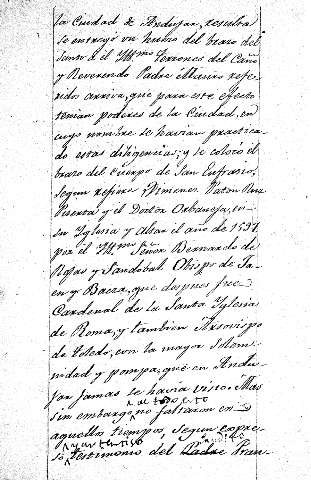 la Ciudad de Andujar, resulta
se entregó un hueso del brazo del
Santo á el Yllmo Terrones del Caño
y Reverendo Padre Maestro refe-
ridos arriva, que para este efecto
tenian poderes de la Ciudad, en
cuyo nombre se havian practica-
do estas diligencias; y se colocó el
brazo del cuerpo de San Eufrasio,
segun refiere Ximenez Paton Rus
Puerta y el Doctor Orbaneja, en
su Yglesia y Altar el año de 1597
por el Yllmo Señor Bernardo de
Rojas y Sandobal Obispo de Ja-
en y Baeza, que despues fue
Cardenal de la Santa Yglesia
de Roma, y tambien Arzovispo
de Toledo, con la mayor solem-
nidad y pompa, que en Andu-
jar jamas se havia visto. Mas
sin embargo no faltaron en
aquellos tiempos, segun expre-
so testimonio del Padre Fran-